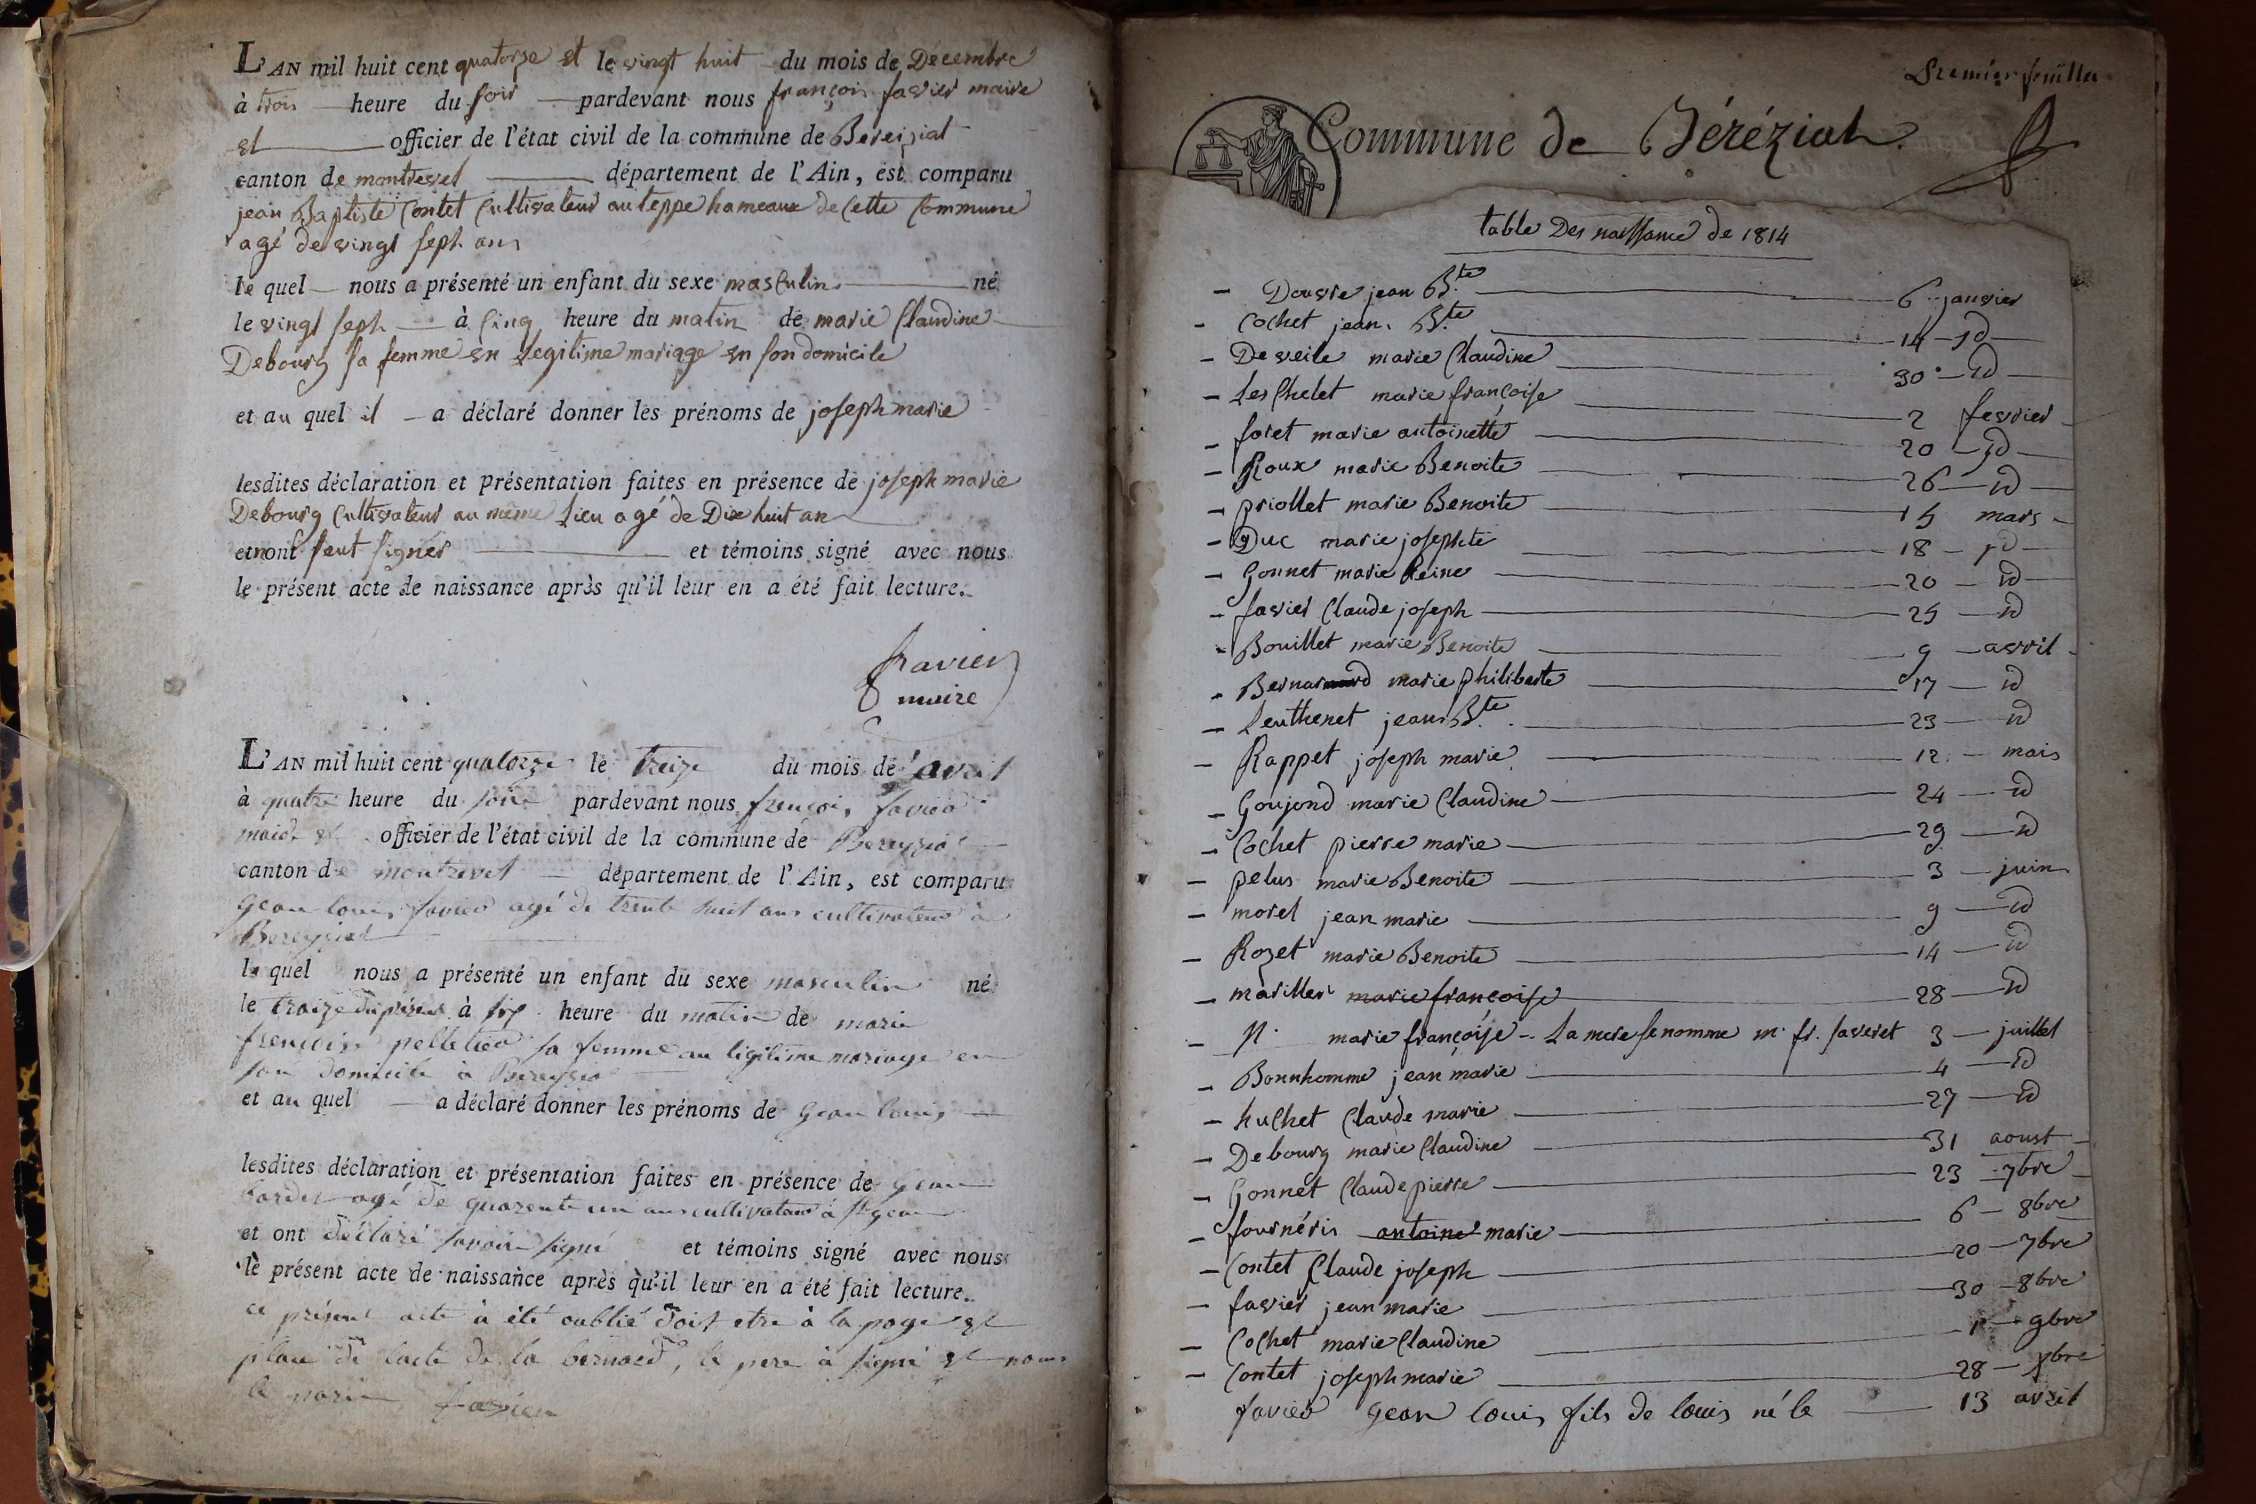 L'AN mil huit cent quatorze et le vingt huit du mois de Decembre
à trois heure du soir pardevant nous françois favier maire
et officier de l'état civil de la commune de Bereiziat
canton de montrevel département de l'Ain, est comparu
jean Baptiste Contet Cultivateur au teppe hameaux de Cette Commune
agé de vingt sept ans
le quel nous a présenté un enfant du sexe masculin né
le vingt sept à Cinq heure du matin de marie Claudine
Debourg sa femme en Legitime mariage en son domicile
et au quel il a déclaré donner les prénoms de joseph marie
lesdites déclaration et présentation faites en présence de joseph marie
Debourg Cultivateur au même Lieu agé de Dixe huit an
etnont seut signer et témoins signé avec nous
le présent acte de naissance après qu'il leur en a été fait lecture.
favier
maire
L'AN mil huit cent quatorze le treize du mois de avril
à quatre heure du soir pardevant nous françois favier
maire et officier de l'état civil de la commune de Bereyziat
canton de montrevel département de l'Ain, est comparu
gean louis favier agé de trente huit ans cultivateur à
Bereyziat
le quel nous a présenté un enfant du sexe masculin né
le traize à six heure du matin de marie
françoise pelletier sa femme au ligitime mariage en
son domicile à Bereyziat
et au quel a déclaré donner les prénoms de gean louis
lesdites déclaration et présentation faites en présence de gean
agé de quarente un ans cultivateur à st gean
et ont déclaré savoir signé et témoins signé avec nous
le présent acte de naissance après qu'il leur en a été fait lecture.
ce présent acte à été oublié doit etre à la page et
place de lacte de la bernard, le pere à signé et nous
le maire favier
Premier feuillet
Commune de Béréziat.
table Des naissance de 1814
- Douvre jean Bte 6 janvier
- Cochet jean Bte 14 id
- Deveile marie Claudine 30 id
- Leschelet marie françoise 2 fevrier
- foret marie antoinette 20 id
- Roux marie Benoite 26 id
- priollet marie Benoite 15 mars
- Duc marie josephte 18 id
- Gonnet marie Reine 20 id
- favier Claude joseph 25 id
- Bouillet marie Benoite 9 avril
- Bernard marie philiberte 17 id
- Leuthenet jean Bte 23 id
- Rappet joseph marie 12 mais
- Goujond marie Claudine 24 id
- Cochet pierre marie 29 id
- pelus marie Benoite 3 juin
- morel jean marie 9 id
- Rozet marie Benoite 14 id
- mariller marie françoise 28 id
- N. marie françoise - La mere se nomme m. fr. faveret 3 juillet
- Bonnhomme jean marie 4 id
- huchet Claude marie 27 id
- Debourg marie Claudine 31 aoust
- Gonnet Claude pierre 23 7bre
- fournéris antoine marie 6 8bre
- Contet Claude joseph 20 7bre
- favier jean marie 30 8bre
- Cochet marie Claudine 1 9bre
- Contet joseph marie 28 xbre
favier gean louis fils de louis né le 13 avril